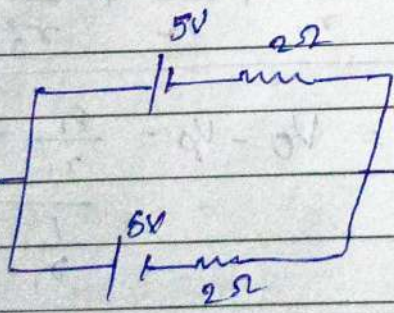 5V
2Ω
5V
2Ω